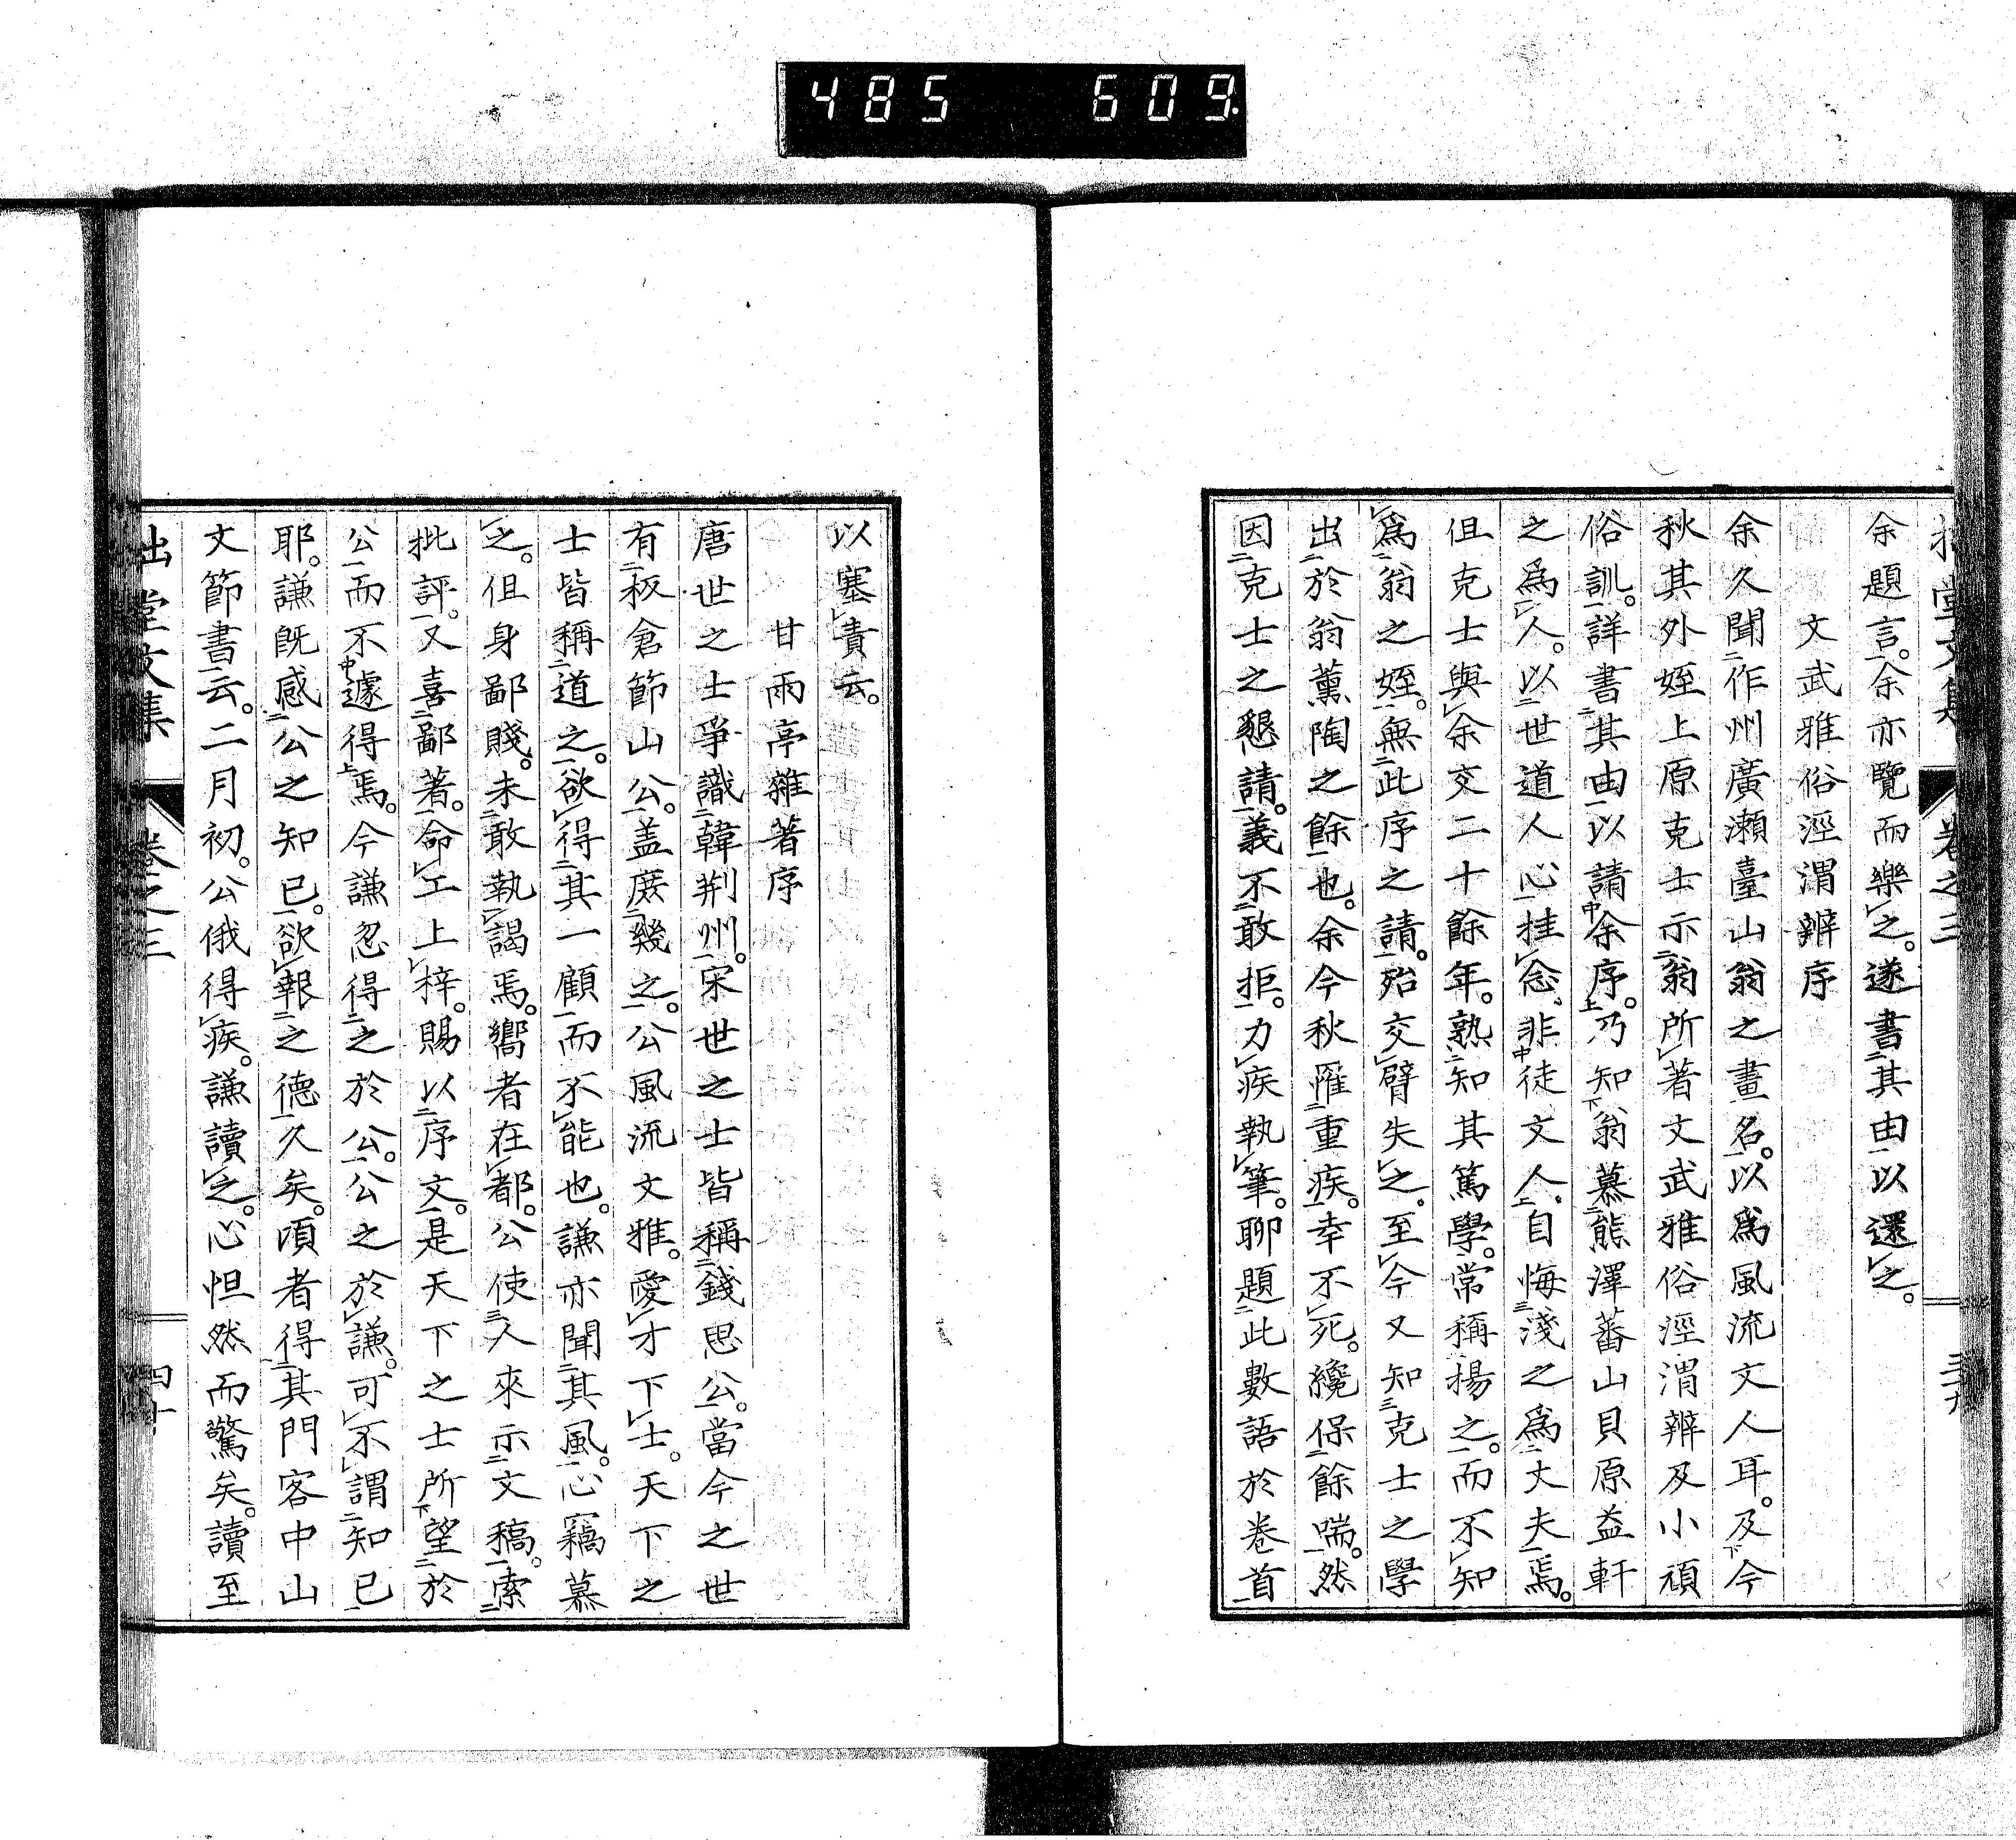 485 609
余題言。余亦覽而樂之。遂書其由以還之。
文武雅俗涇渭辨序
余久聞作州廣瀬臺山翁之畫名。以爲風流文人耳。及今
秋其外姪上原克士示翁所著文武雅俗涇渭辨及小頑
俗訓。詳書其由以請余序。乃知翁慕熊澤蕃山貝原益軒
之爲人。以世道人心挂念、非徒文人、自悔淺之爲丈夫焉。
但克士與余交二十餘年。熟知其篤學。常稱揚之。而不知
爲翁之姪。無此序之請。殆交臂失之。至今又知克士之學
出於翁薰陶之餘也。余今秋罹重疾。幸不死。纔保餘喘。然
因克士之懇請。義不敢拒。力疾執筆。聊題此數語於卷首
以塞責云。
甘雨亭雜著序
唐世之士爭識韓荆州。宋世之士皆稱錢思公。當今之世
有板倉節山公。盖庶幾之。公風流文雅。愛才下士。天下之
士皆稱道之。欲得其一顧而不能也。謙亦聞其風。心竊慕
之。但身鄙賤。未敢執謁焉。嚮者在都。公使人來示文稿。索
批評。又喜鄙著。命工上梓。賜以序文。是天下之士所望於
公而不遽得焉。今謙忽得之於公。公之於謙。可不謂知已
耶。謙既感公之知已。欲報之德久矣。頃者得其門客中山
文節書云。二月初。公俄得疾。謙讀之。心怛然而驚矣。讀至
拙堂文集 卷之三 四十